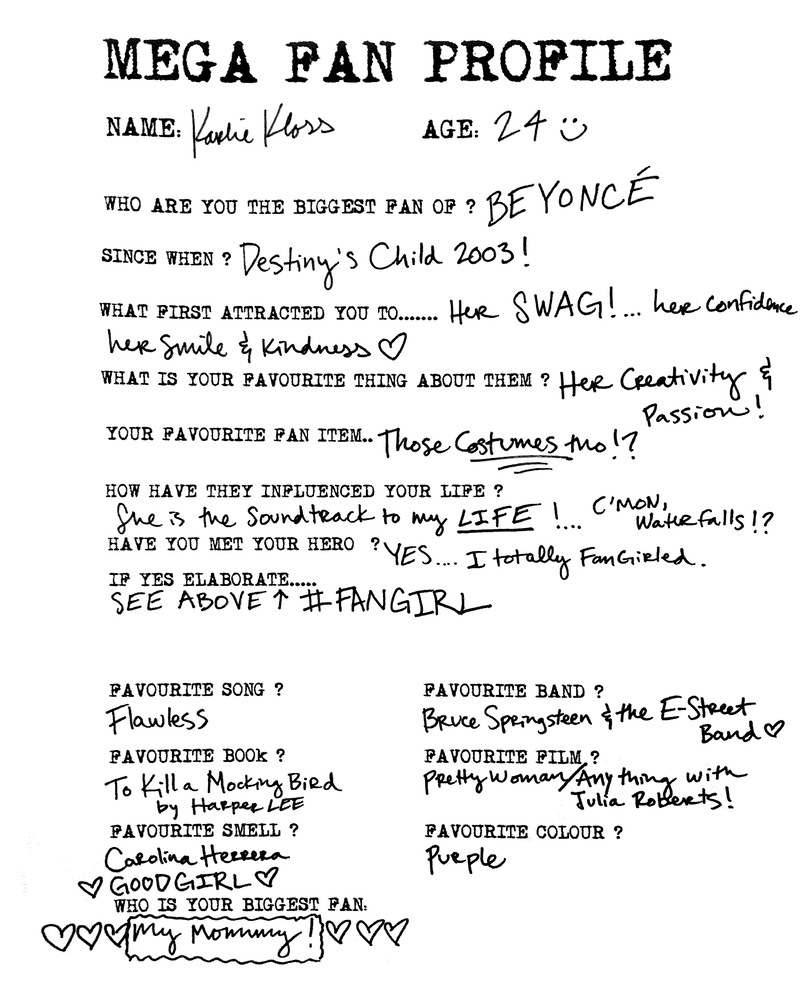 MEGA FAN PROFILE
NAME: Karlie Kloss AGE: 24
WHO ARE YOU THE BIGGEST FAN OF ? BEYONCÉ
SINCE WHEN ? Destiny's Child 2003!
WHAT FIRST ATTRACTED YOU TO....... Her SWAG!... her confidence
her smile & kindness ♡
WHAT IS YOUR FAVOURITE THING ABOUT THEM ? Her Creativity &
Passion!
YOUR FAVOURITE FAN ITEM.. Those Costumes tho!?
HOW HAVE THEY INFLUENCED YOUR LIFE ?
She is the Soundtrack to my LIFE !... C'MON,
Waterfalls!?
HAVE YOU MET YOUR HERO ? YES.... I totally FanGirled.
IF YES ELABORATE.....
SEE ABOVE ↑ #FANGIRL
FAVOURITE SONG ?
Flawless
FAVOURITE BAND ?
Bruce Springsteen & the E-Street
Band ♡
FAVOURITE BOOK ?
To Kill a Mocking Bird
by Harper LEE
FAVOURITE FILM ?
Pretty Woman/Anything with
Julia Roberts!
FAVOURITE SMELL ?
Carolina Herrera
♡ GOOD GIRL ♡
FAVOURITE COLOUR ?
Purple
WHO IS YOUR BIGGEST FAN:
♡♡♡ My Mommy! ♡♡♡